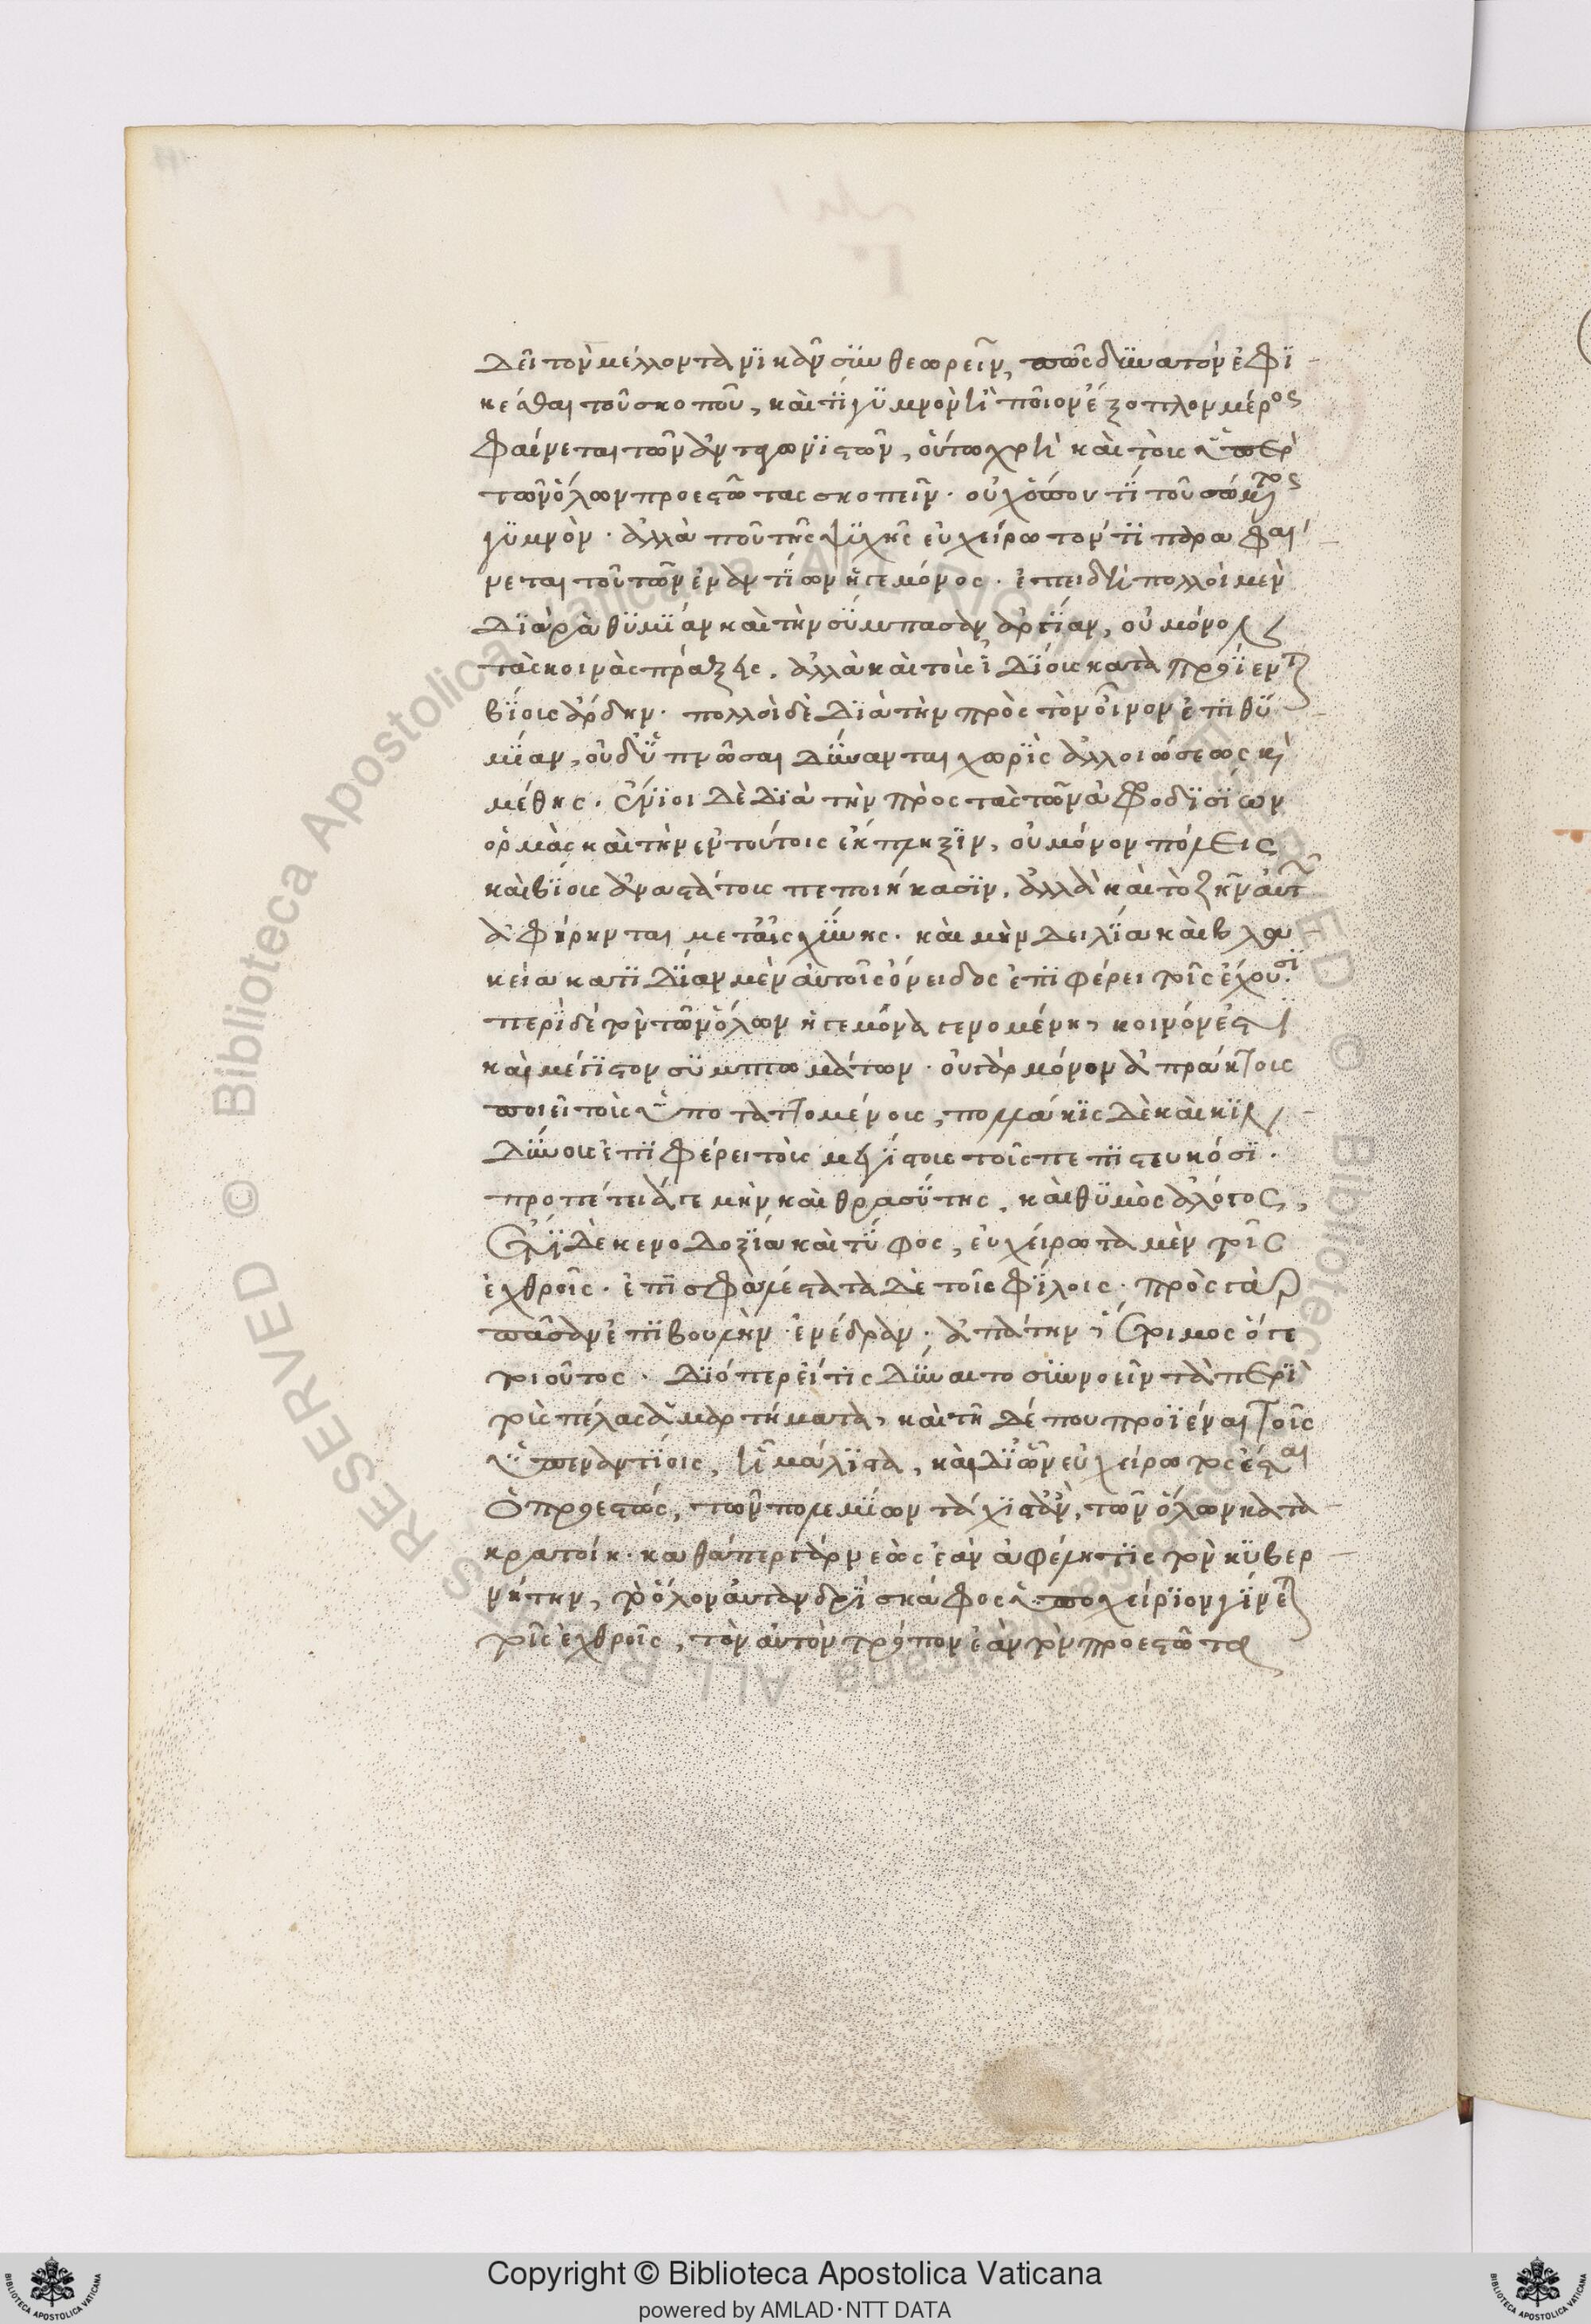 δεῖ τὸν μέλλοντα νϊκᾶν συνθεωρεῖν, πῶς δυνατὸν ἐφϊ
κέσθαι τοῦ σκοποῦ, καὶ τί γϋμνὸν ἢ ποῖον ἔξοπλον μέρος
φαίνεται τῶν ἀνταγωνϊστῶν, οὕτω χρὴ καὶ τοὺς ὑπὲρ
τῶν ὅλων προεστῶτας σκοπεῖν. οὐχ ὅπου τί τοῦ σώματος
γϋμνὸν. ἀλλὰ ποῦ τῆς ψϋχῆς εὐχείρωτόν τϊ παραφαί
νεται τοῦ τῶν ἐναντίων ἡγεμόνος. ἐπειδὴ πολλοὶ μὲν
δϊὰ ῥαθϋμϊαν καὶ τὴν σύμπασαν ἀργίαν, οὐ μόνον
τὰς κοινὰς πράξεις. ἀλλὰ καὶ τοὺς ἰδίους καταπροΐενται
βίους ἄρδην. πολλοὶ δὲ δϊὰ τὴν πρὸς τὸν οἶνον ἐπϊθϋ
μίαν, οὐδ' ὑπνῶσαι δύνανται χωρὶς ἀλλοιώσεως καὶ
μέθης. ἔνϊοι δὲ δϊὰ τὴν πρὸς τὰς τῶν ἀφροδισίων
ὁρμὰς καὶ τὴν ἐν τούτοις ἔκπληξϊν, οὐ μόνον πόλεις
καὶ βίους ἀναστάτους πεποιήκασϊν. ἀλλὰ καὶ τὸ ζῆν αὐτῶν
ἀφήρηνται μετ' αἰσχύνης. καὶ μὴν δειλία καὶ βλα
κεία κατϊδίαν μὲν αὐτοῖς ὄνειδος ἐπϊφέρει τοῖς ἔχουσϊ.
περὶ δὲ τὸν τῶν ὅλων ἡγεμόνα γενομένη, κοινόν ἐστι
καὶ μέγϊστον συμπτωμάτων. οὐ γὰρ μόνον ἀπράκτους
ποιεῖ τοὺς ὑποταττομένους, πολλάκϊς δὲ καὶ κϊν
δύνους ἐπϊφέρει τοὺς μεγίστους τοῖς πεπϊστευκόσϊ.
προπέτειά γε μὴν καὶ θρασύτης, καὶ θϋμὸς ἄλογος,
ἔτϊ δὲ κενοδοξία καὶ τῦφος, εὐχείρωτα μὲν τοῖς
ἐχθροῖς. ἐπϊσφαλέστατα δὲ τοῖς φίλοις. πρὸς γὰρ
πᾶσαν ἐπϊβουλὴν. ἐνέδραν. ἀπάτην, ἕτοιμος ὅ γε
τοιοῦτος. δϊόπερ εἴ τϊς δύναιτο συννοεῖν τὰ περὶ
τοὺς πέλας ἁμαρτήματα, καὶ τῇδέ που προϊέναι τοῖς
ὑπεναντίοις, ᾗ μάλϊστα, καὶ δι' ὧν εὐχείρωτός ἐσται
ὁ προεστώς, τῶν πολεμίων τάχϊστ' ἂν, τῶν ὅλων κατα
κρατοίη. καθάπερ γὰρ νεὼς ἐὰν ἀφέλῃ τϊς τὸν κϋβερ
νήτην, τὸ ὅλον αὐτανδρὶ σκάφος ὑποχείρϊον γίνεται
τοῖς ἐχθροῖς, τὸν αὐτὸν τρόπον ἐὰν τὸν προεστῶτα
Copyright © Biblioteca Apostolica Vaticana
powered by AMLAD·NTT DATA